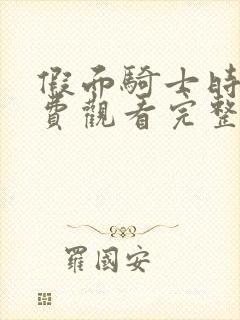 假面騎士時
費觀看完整
羅國安